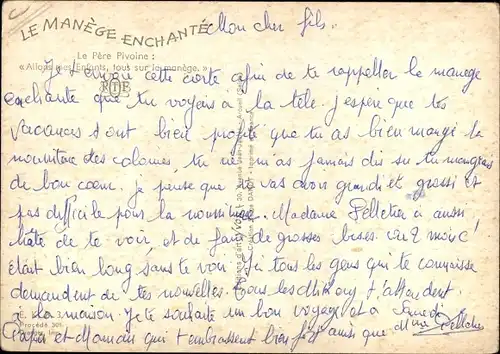 LE MANÈGE ENCHANTÉ
Mon cher fils.
Le Père Pivoine :
« Allons mes Enfants, tous sur le manège. »
Je t'envoie cette carte afin de te rappeller le manege
enchante que tu voyais a la télé. J'espere que tes
vacances sont bien profité que tu as bien mangé la
nourriture des colonies, tu ne m'as jamais dis su tu mangeais
de bon cœur. Je pense que tu vas avoir grandi et grossi et
pas difficile pour la nourriture. Madame Pelletier a aussi
hâte de te voir, et de faire de grosses bises. car 2 mois c'
etait bien long sans te voir. Ici tous les gens qui te connaisse
demandent de tes nouvelles. Tous les t'attendent
a la maison. Je te souhaite un bon voyage et a Samedi
Papa et Maman qui t'embrassent bien fort ainsi que Mme Pelletier